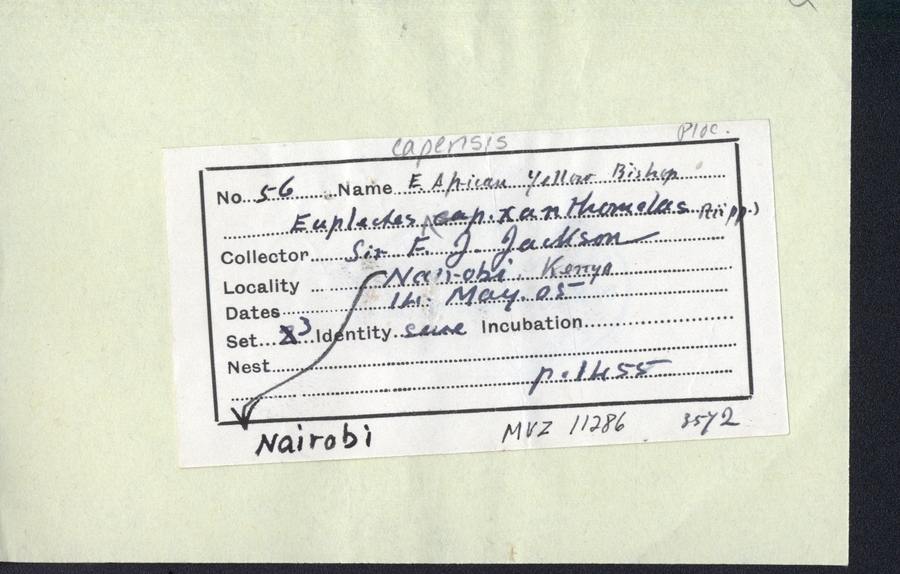 capensis Ploc.
No. 56 Name E African Yellow Bishop
Euplectes cap. xanthomelas Rüpp.)
Collector Sir F. J. Jackson
Locality Nairobi. Kenya
Dates 14. May. 05
Set 3 Identity sure Incubation
Nest
p. 1455
Nairobi MVZ 11286 3572